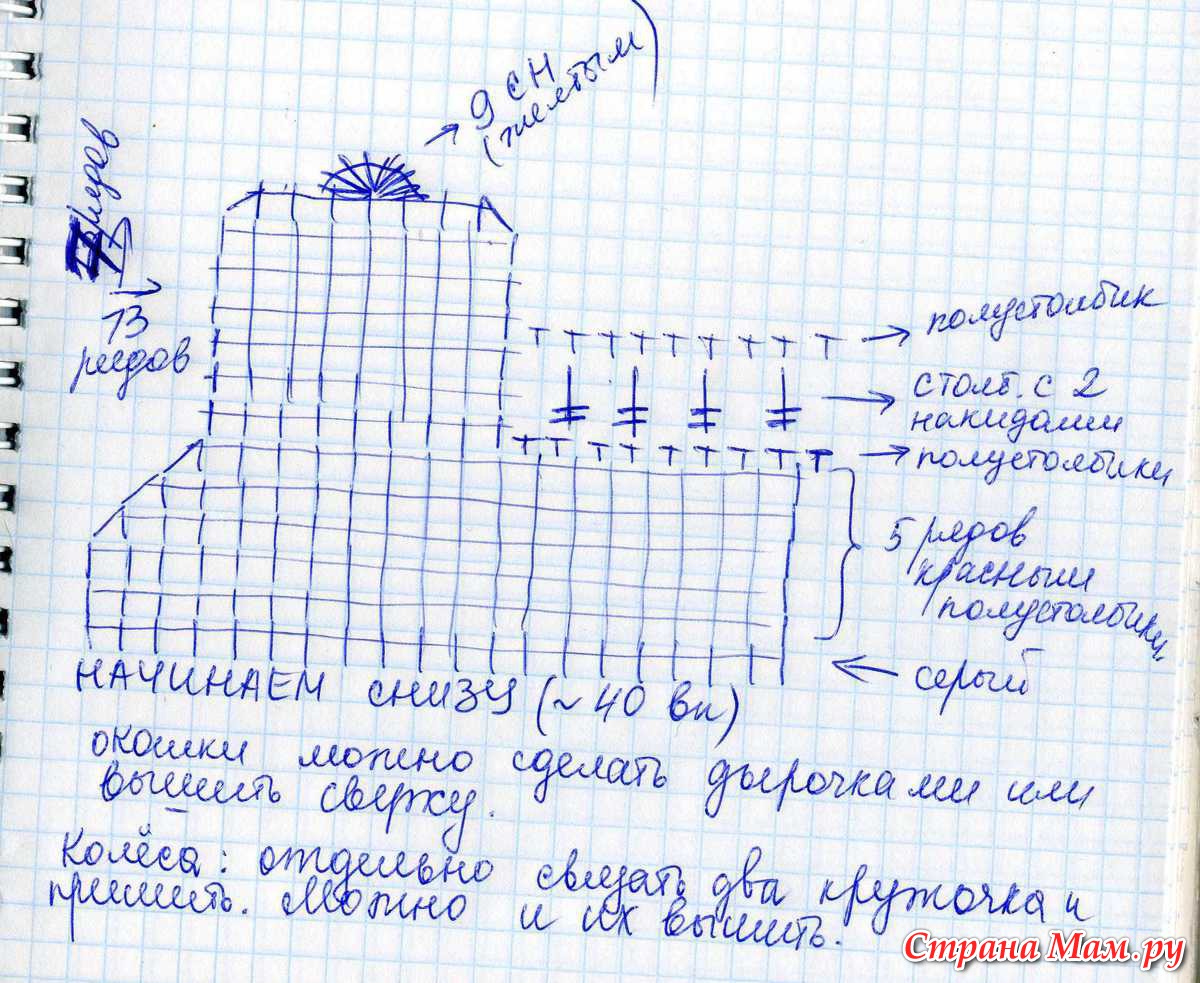 9 СН
(желтым)
7 рядов
13
рядов
полустолбик
столб. с 2
накидами
полустолбики
5 рядов
красным
полустолбики
серый
НАЧИНАЕМ СНИЗУ (~40 вп)
окошки можно сделать дырочками или
вышить сверху.
Колёса: отдельно связать два кружочка и
пришить. Можно и их вышить.
Страна Мам.ру